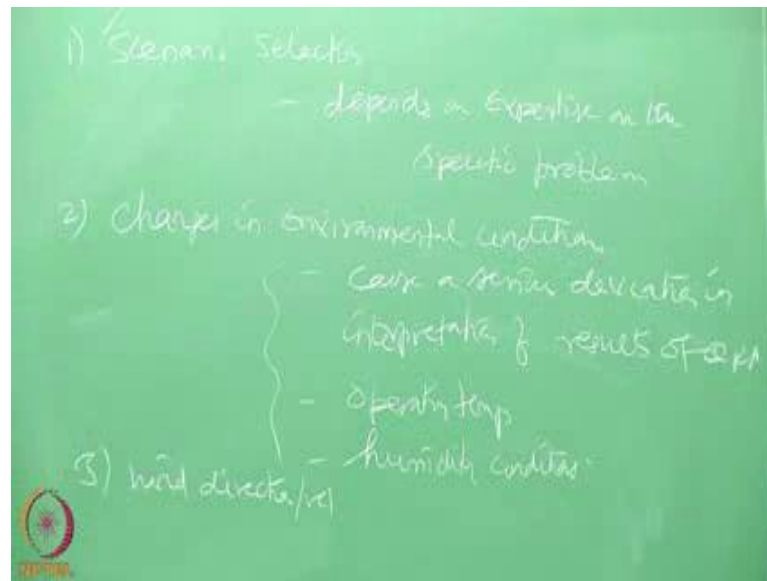 1) Scenario Selection
- depends on Expertise on the
specific problem
2) Changes in environmental condition
- cause a serious deviation in
interpretation of results of QRA
- operating temp
- humidity condition
3) wind direction/vel
NPTEL